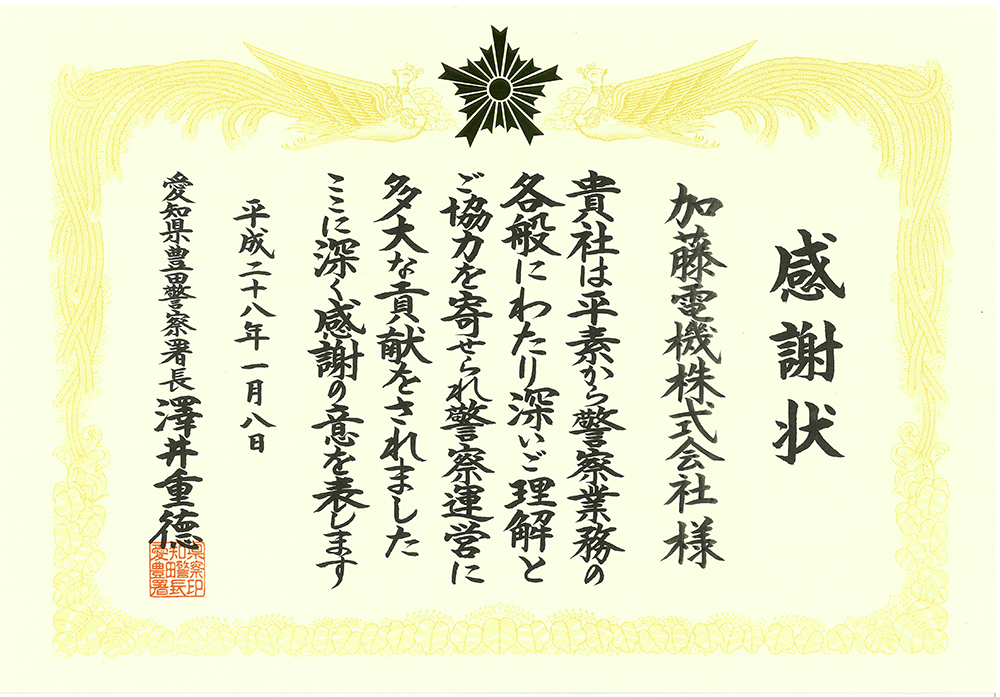 感謝状
加藤電機株式会社様
貴社は平素から警察業務の
各般にわたり深いご理解と
ご協力を寄せられ警察運営に
多大な貢献をされました
ここに深く感謝の意を表します
平成二十八年一月八日
愛知県豊田警察署長 澤井重徳
愛知県豊田警察署長印